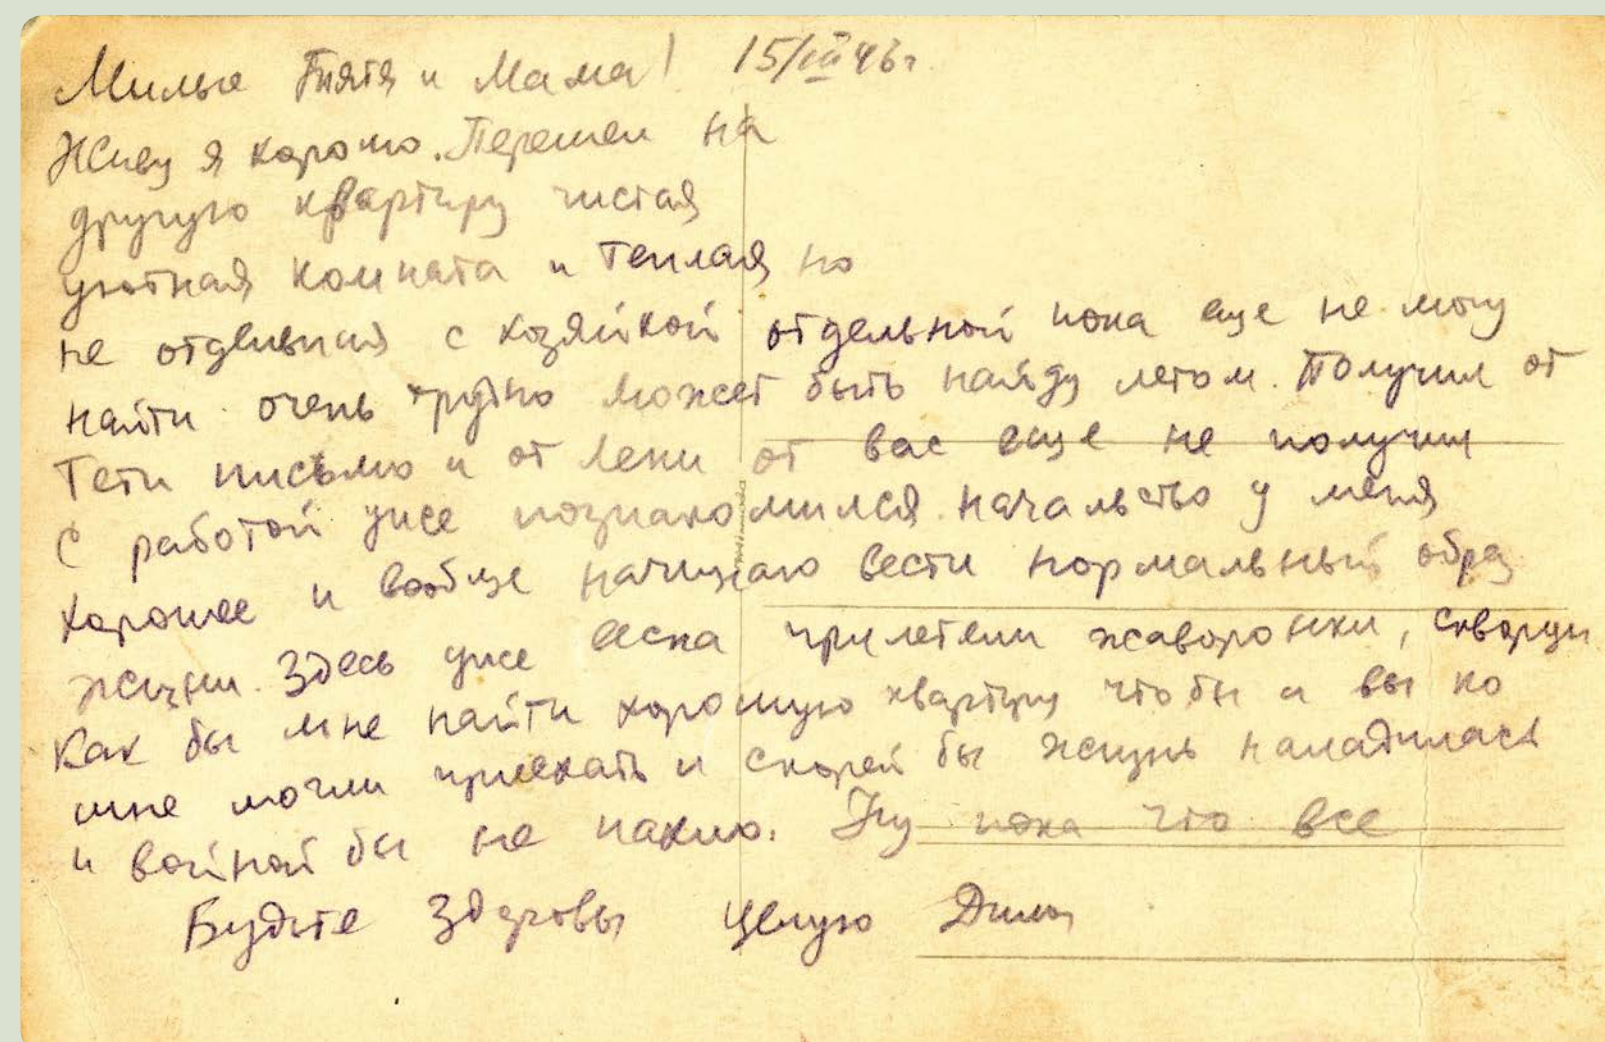 Милые Тятя и Мама! 15/III 46г
Живу я хорошо. Перешел на
другую квартиру чистая
уютная комната и теплая но
не отдельная с хозяйкой отдельной пока еще не могу
найти очень трудно может быть найду летом. Получил от
Тети письмо и от Лени от вас еще не получил
С работой уже познакомился. начальство у меня
хорошее и вообще начинаю вести нормальный образ
жизни. Здесь уже весна прилетели жаворонки, скворцы
Как бы мне найти хорошую квартиру что бы и вы ко
мне могли приехать и скорей бы жизнь наладилась
и войной бы не пахло. Ну пока что все
Будьте здоровы целую